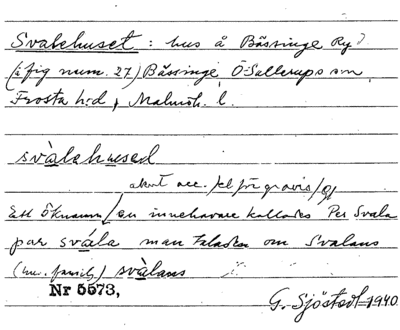 Svalehuset : hus å Bässinge Ry?
(å fig num. 27) Bässinge Ö Sallerups sn,
Frosta hd, Malmöh. l.
svàlehused
akut acc. /el för gravis/
Ett öknamn/en innehavare kallades Per Svala
par svála man talade om Svalans
(hu. familj) svàlans
Nr 5573,
G. Sjöstedt 1940